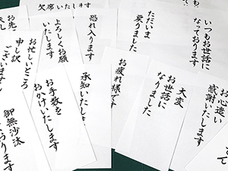 いつもお世話に
なっております
お心遣い
感謝いたし
ただいま
戻りました
大変
お世話に
なりました
お疲れ様です
欠席いた
恐れ入ります
よろしくお願
いたします
承知いたし
お手数を
おかけいたします
お忙しいところ
申し訳
ございま
御無沙汰
おります